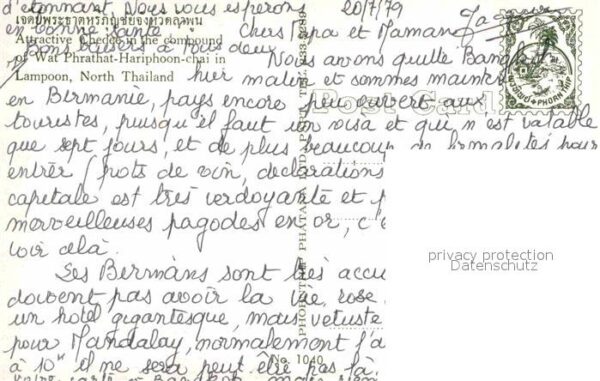 d'étonnant. Nous vous espérons
en bonne santé
Bons baisers à tous deux
20/7/79
Chers Papa et Maman
Nous avons quitté Bangkok
hier matin et sommes mainte
en Birmanie, pays encore peu ouvert aux
touristes, puisqu'il faut un visa et qui n'est valable
que sept jours, et de plus beaucoup de formalités pour
entrer (pots de vin, déclarations
capitale est très verdoyante et p
merveilleuses pagodes en or, c'e
voir cela.
Les Birmans sont très accu
doivent pas avoir la vie rose
un hotel gigantesque, mais vetuste
pour Mandalay, normalement l'a
à 10H il ne sera peut être pas là.
เจดีย์พระธาตุหริภุญชัยจังหวัดลำพูน
Attractive Chedee in the compound
of Wat Phrathat-Hariphoon-chai in
Lampoon, North Thailand
Post Card
PHORNTHIP
No. 1040
privacy protection
Datenschutz